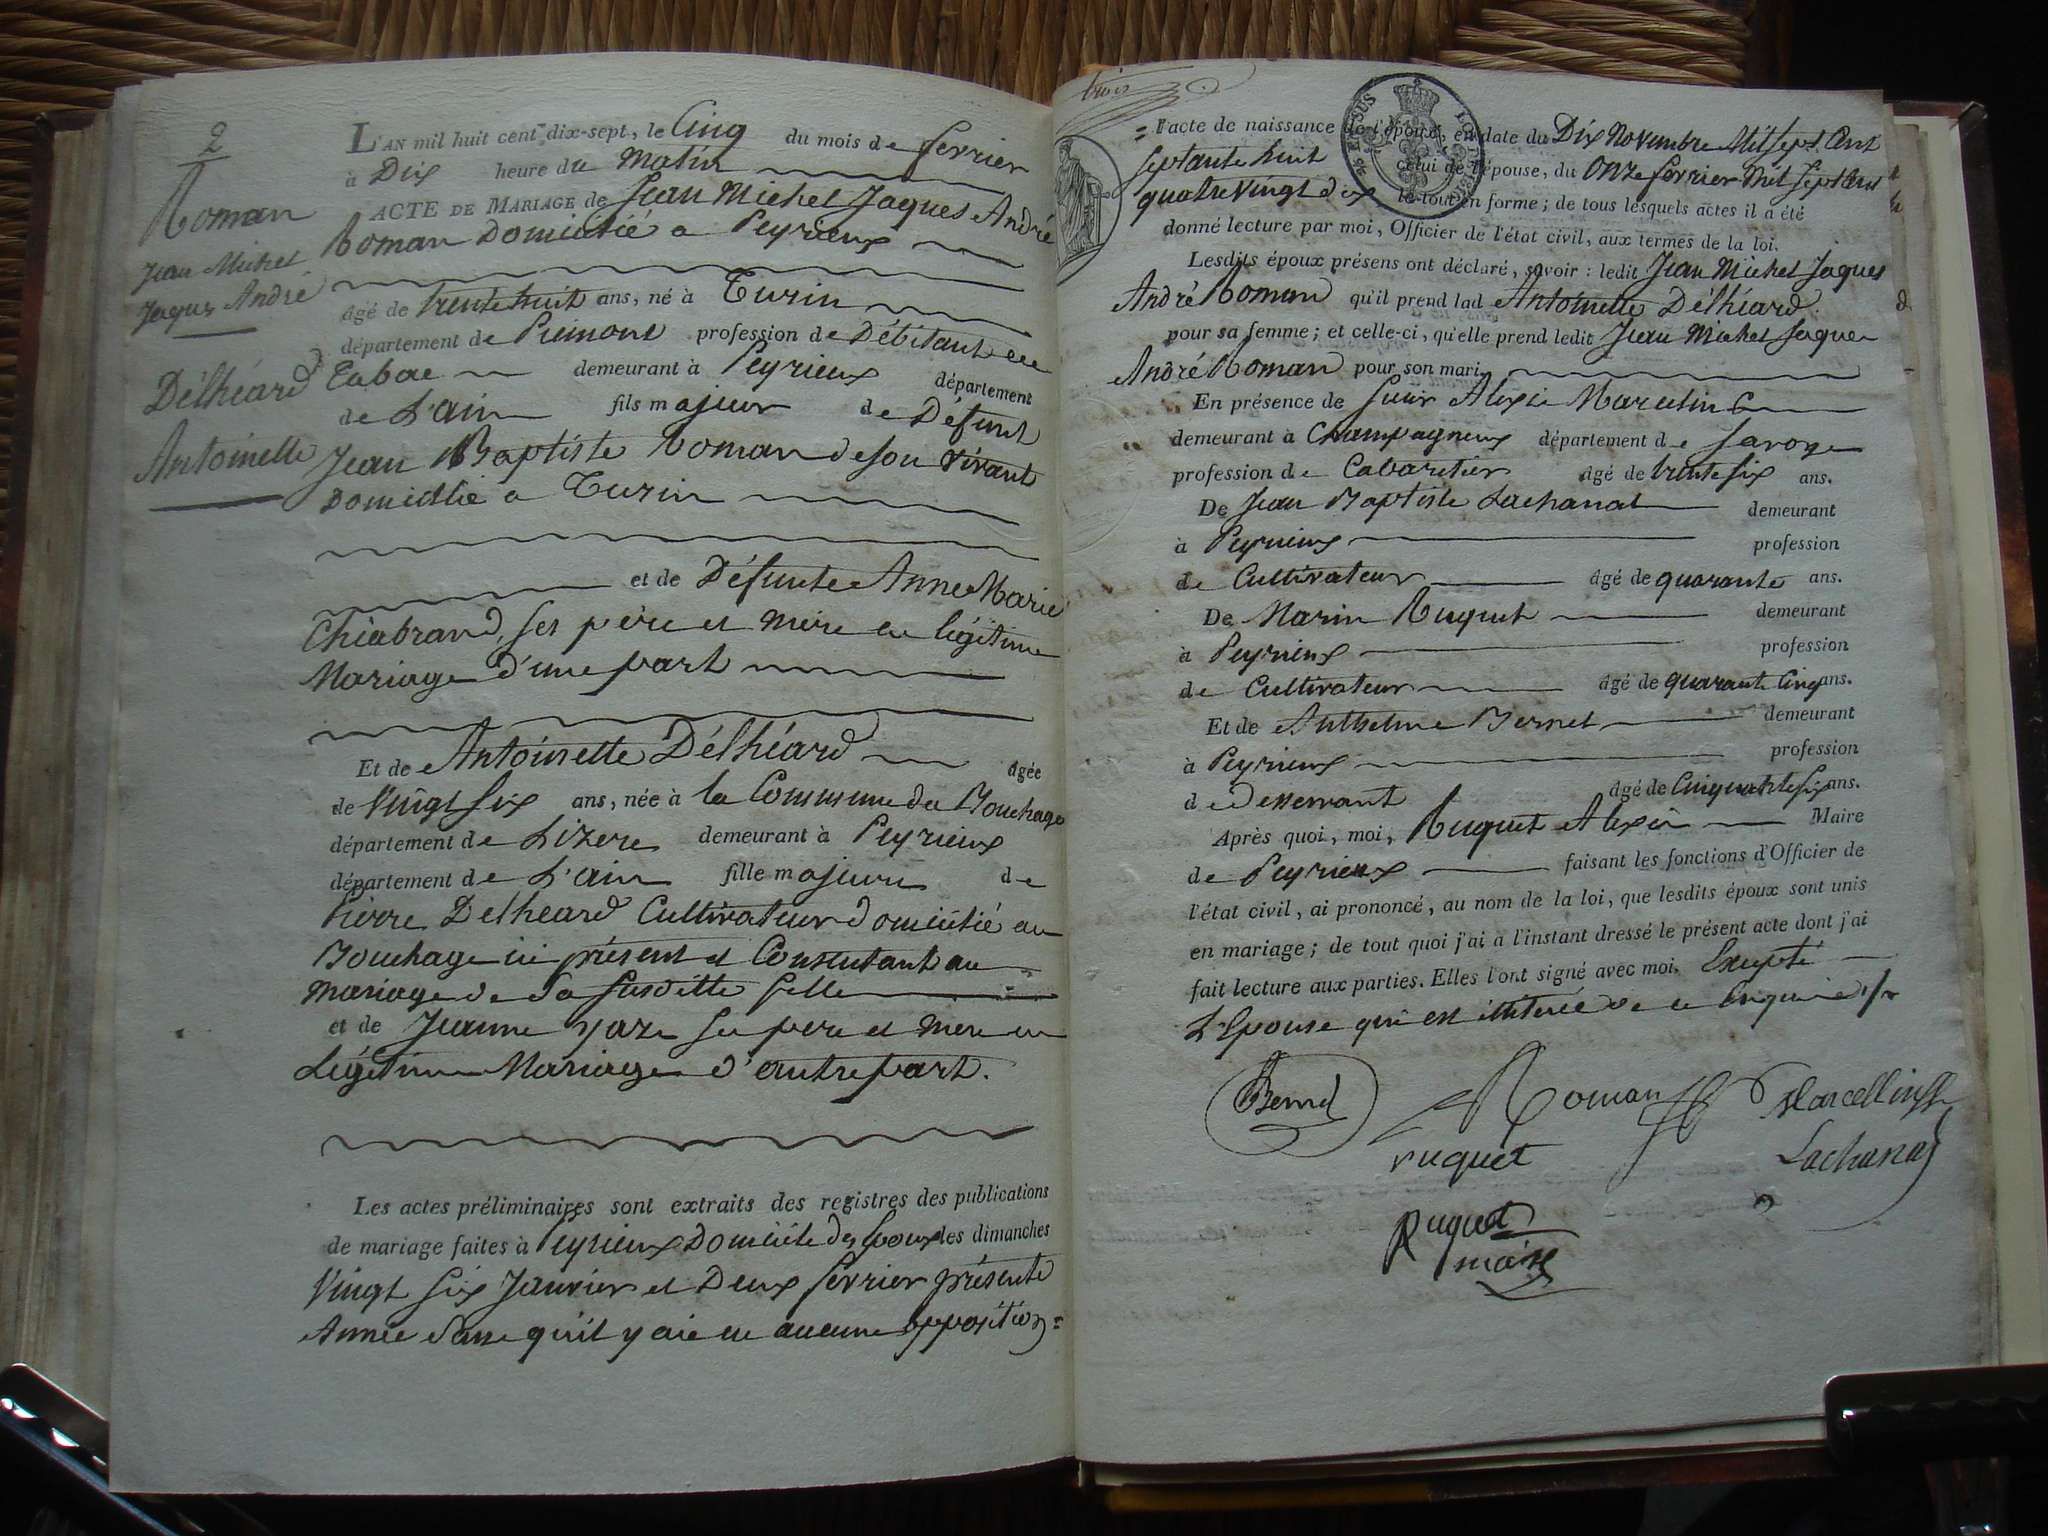 2
Roman
Jean Michel
Jaques André
Délhéard
Antoinette
L'AN mil huit cent dix-sept, le Cinq du mois de fevrier
à Dix heure du Matin
ACTE DE MARIAGE de Jean Michel Jaques André
Roman Domicilié a Peyrieux
âgé de trente huit ans, né à Turin
département de Piémont profession de Débitant de
Tabac demeurant à Peyrieux département
de L'ain fils majeur de Défunt
Jean Baptiste Roman de son vivant
Domicilié a Turin
et de Défunte Anne Marie
Chiabrand, ses père et mère en légitime
Mariage d'une part
Et de Antoinette Délhéard âgée
de Vingt six ans, née à la Commune du Bouchage
département de Lizere demeurant à Peyrieux
département de L'ain fille majeure de
Pierre Delheard Cultivateur domicilié au
Bouchage ici présent et Consentant au
mariage de sa susditte fille
et de Jeanne yaze ses pere et mere en
Légitime Mariage d'autre part.
Les actes préliminaires sont extraits des registres des publications
de mariage faites à Peyrieux Domicile des Epoux les dimanches
Vingt six Janvier et Deux fevrier présente
Année sans qu'il y aie eu aucune opposition =
trois
= l'acte de naissance de l'époux, en date du Dix Novembre Mil sept Cent
septante huit celui de l'épouse, du Onze fevrier Mil sept Cent
quatre vingt dix le tout en forme; de tous lesquels actes il a été
donné lecture par moi, Officier de l'état civil, aux termes de la loi.
Lesdits époux présens ont déclaré, savoir : ledit Jean Michel Jaques
André Roman qu'il prend lad Antoinette Délhéard
pour sa femme; et celle-ci, qu'elle prend ledit Jean Michel Jaques
André Roman pour son mari.
En présence de sieur Alexis Marcelin
demeurant à Champagneux département de Savoye
profession de Cabaretier âgé de trente six ans.
De Jean Baptiste Lachanal demeurant
à Peyrieux profession
de Cultivateur âgé de quarante ans.
De Marin Ruquet demeurant
à Peyrieux profession
de Cultivateur âgé de quarante Cinq ans.
Et de Anthelme Bernet demeurant
à Peyrieux profession
de desservant âgé de Cinquante six ans.
Après quoi, moi, Ruquet Alexis Maire
de Peyrieux faisant les fonctions d'Officier de
l'état civil, ai prononcé, au nom de la loi, que lesdits époux sont unis
en mariage; de tout quoi j'ai à l'instant dressé le présent acte dont j'ai
fait lecture aux parties. Elles l'ont signé avec moi. Excepté
L'Epouse qui est illiterée de ce Enquise
Bernet Roman Marcellin
ruquet Lachanal
Ruquet
maire